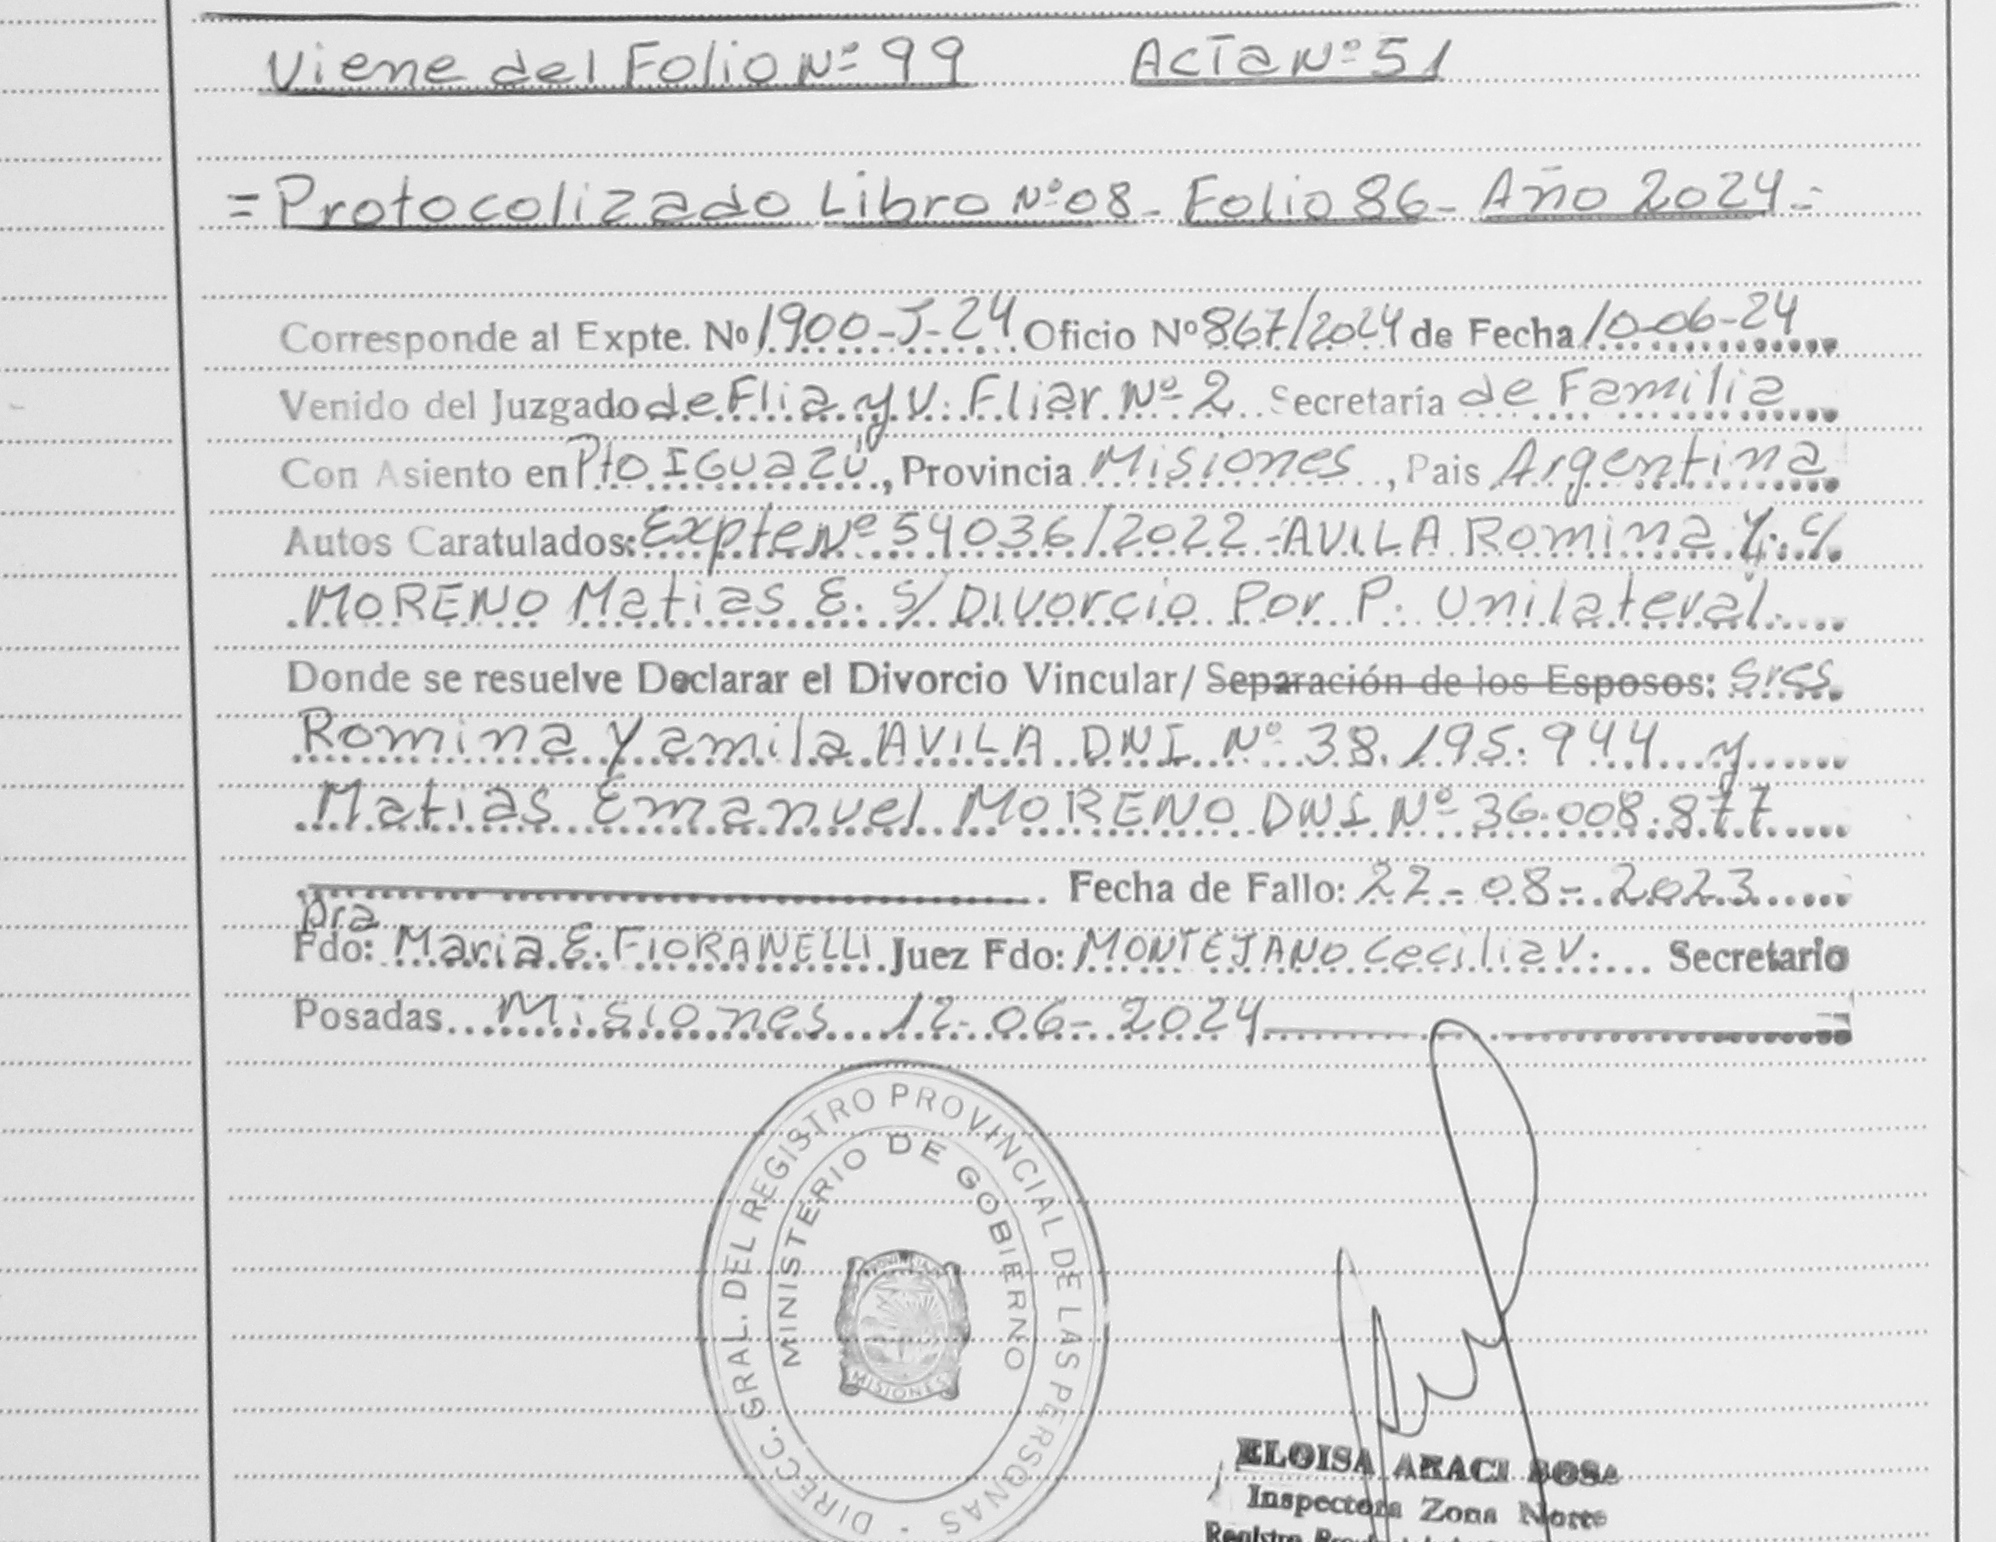 Viene del Folio Nº 99 Acta Nº 51
= Protocolizado Libro Nº 08 - Folio 86 - Año 2024 =
Corresponde al Expte. Nº 1900-J-24 Oficio Nº 867/2024 de Fecha 10-06-24
Venido del Juzgado de Flia y V. Fliar Nº 2 Secretaría de Familia
Con Asiento en Pto IGuazú, Provincia Misiones, Pais Argentina
Autos Caratulados: Expte Nº 54036/2022 - AVILA Romina Y. c/
MORENO Matias E. S/ Divorcio Por P. Unilateral
Donde se resuelve Declarar el Divorcio Vincular/ Separación de los Esposos: Sres
Romina Yamila AVILA DNI Nº 38.195.944 y
Matias Emanuel MORENO DNI Nº 36.008.877
Fecha de Fallo: 22-08-2023
Dra
Fdo: Maria E. FIORANELLI Juez Fdo: MONTEJANO Cecilia V. Secretario
Posadas Misiones 12-06-2024
DIRECC. GRAL. DEL REGISTRO PROVINCIAL DE LAS PERSONAS
MINISTERIO DE GOBIERNO
MISIONES
ELOISA ARACI SOSA
Inspectora Zona Norte
Registro